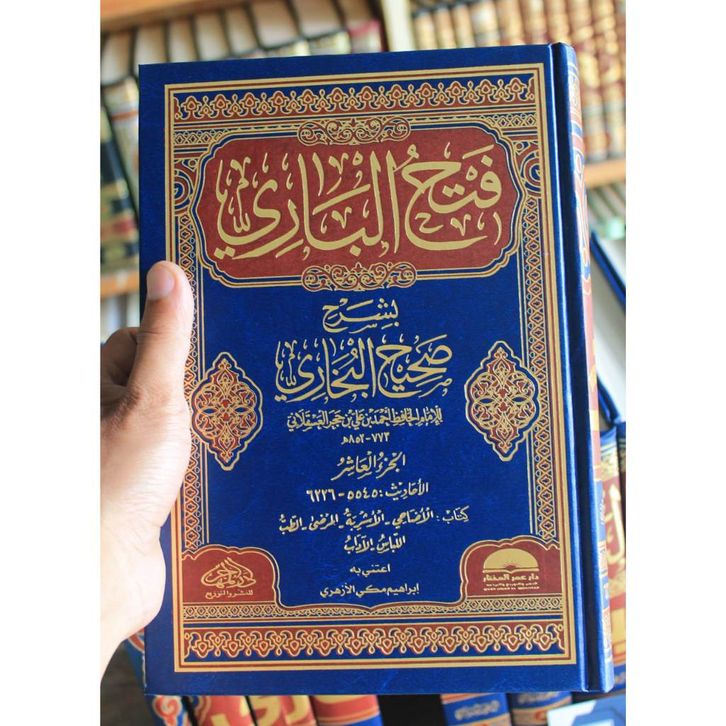 فتح الباري
بشرح
صحيح البخاري
للإمام الحافظ أحمد بن علي بن حجر العسقلاني
٧٧٣-٨٥٢هـ
الجزء العاشر
الأحاديث: ٥٥٤٥-٦٢٢٦
كتاب: الأضاحي-الأشربة-المرضى-الطب
اللباس-الآداب
اعتني به
ابراهيم مكي الأزهري
للنشر والتوزيع
دار عمر المختار